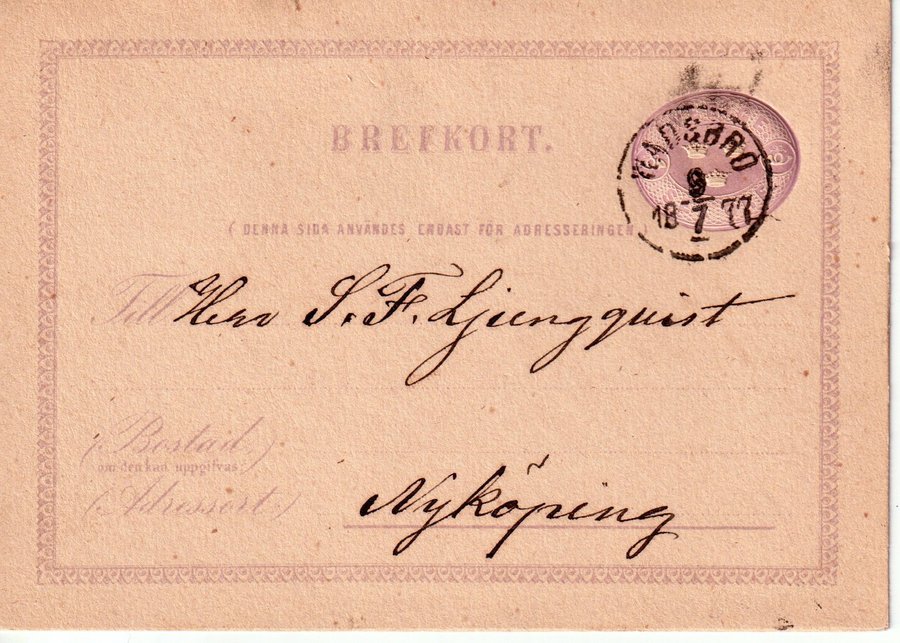 BREFKORT.
WADSBRO
9
18 7 77
6
( DENNA SIDA ANVÄNDES ENDAST FÖR ADRESSERINGEN. )
Till Herr S. F. Ljungquist
(Bostad,)
om den kan uppgifvas:
(Adressort.)
Nyköping